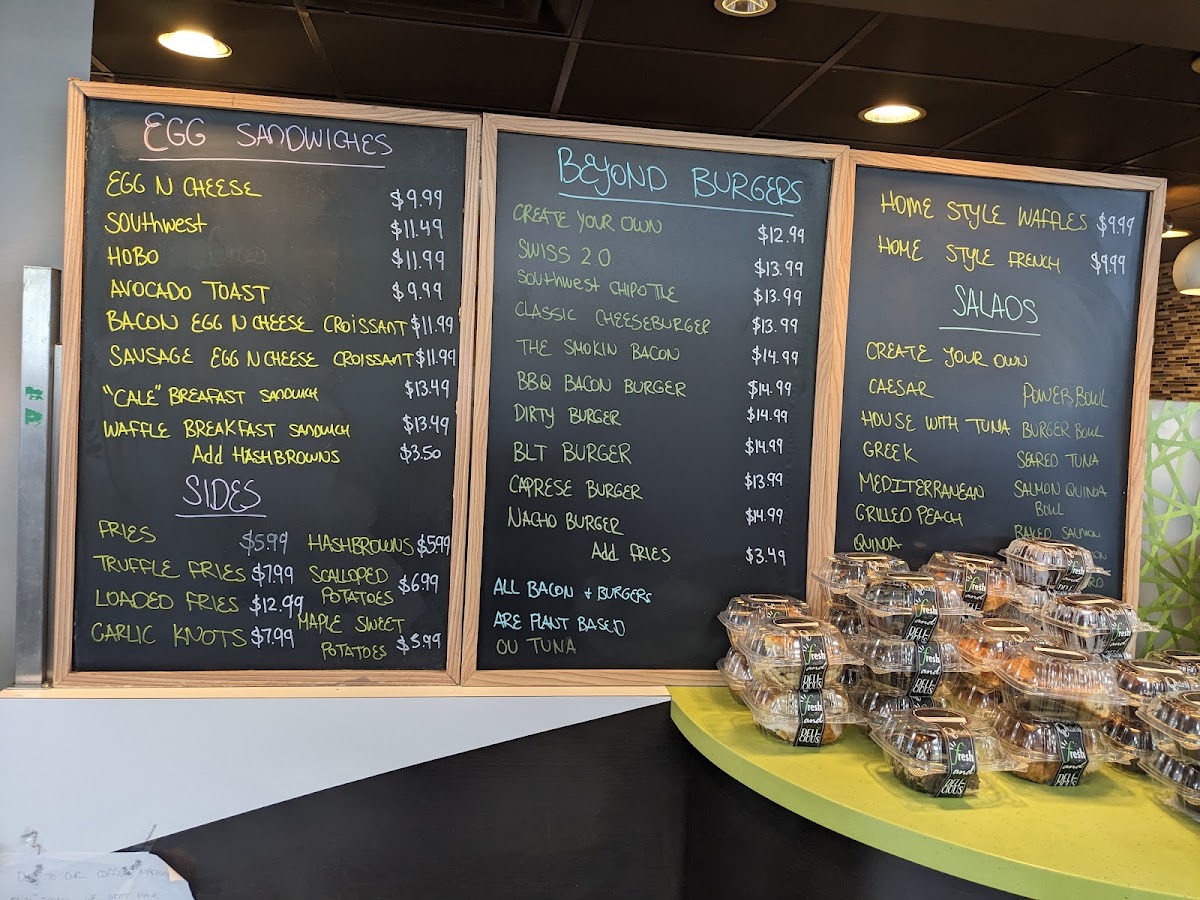 EGG SANDWICHES
EGG N CHEESE $9.99
SOUTHWEST $11.49
HOBO $11.99
AVOCADO TOAST $9.99
BACON EGG N CHEESE CROISSANT $11.99
SAUSAGE EGG N CHEESE CROISSANT $11.99
"CALE" BREAFAST SANDWICH $13.49
WAFFLE BREAKFAST SANDWICH $13.49
Add HASHBROWNS $3.50
SIDES
FRIES $5.99
TRUFFLE FRIES $7.99
LOADED FRIES $12.99
GARLIC KNOTS $7.99
HASHBROWNS $5.99
SCALLOPED
POTATOES $6.99
MAPLE SWEET
POTATOES $5.99
BEYOND BURGERS
CREATE YOUR OWN $12.99
SWISS 2.0 $13.99
SOUTHWEST CHIPOTLE $13.99
CLASSIC CHEESEBURGER $13.99
THE SMOKIN BACON $14.99
BBQ BACON BURGER $14.99
DIRTY BURGER $14.99
BLT BURGER $14.99
CAPRESE BURGER $13.99
NACHO BURGER $14.99
Add FRIES $3.49
ALL BACON + BURGERS
ARE PLANT BASED
OU TUNA
HOME STYLE WAFFLES $9.99
HOME STYLE FRENCH $9.99
SALADS
CREATE YOUR OWN
CAESAR
HOUSE WITH TUNA
GREEK
MEDITERRANEAN
GRILLED PEACH
QUINOA
POWER BOWL
BURGER BOWL
SEARED TUNA
SALMON QUINOA
BOWL
BAKED SALMON
fresh
and
DELI
CIOUS
fresh
and
DELI
CIOUS
fresh
and
DELI
CIOUS
fresh
and
DELI
CIOUS